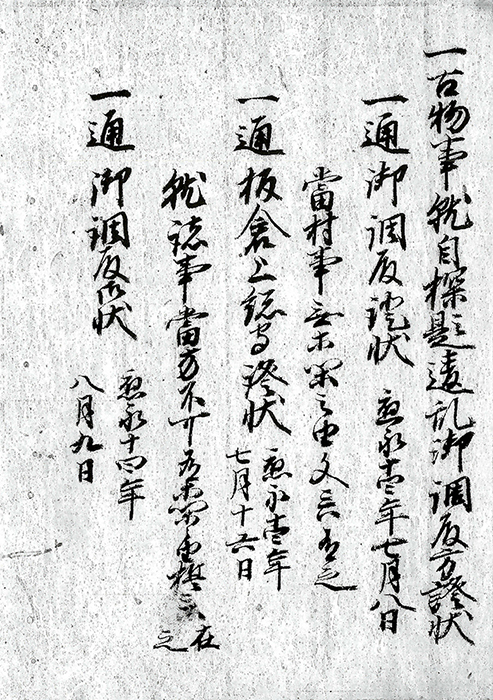 一古物事就自探題違乱御調度方證状
一通御調度證状 應永十壱年七月八日
當村事 之由文言有之
一通板倉上総守證状 應永十壱年
七月十六日
就誌事當方不可為 由 在
之
一通御調度状 應永十四年
八月九日